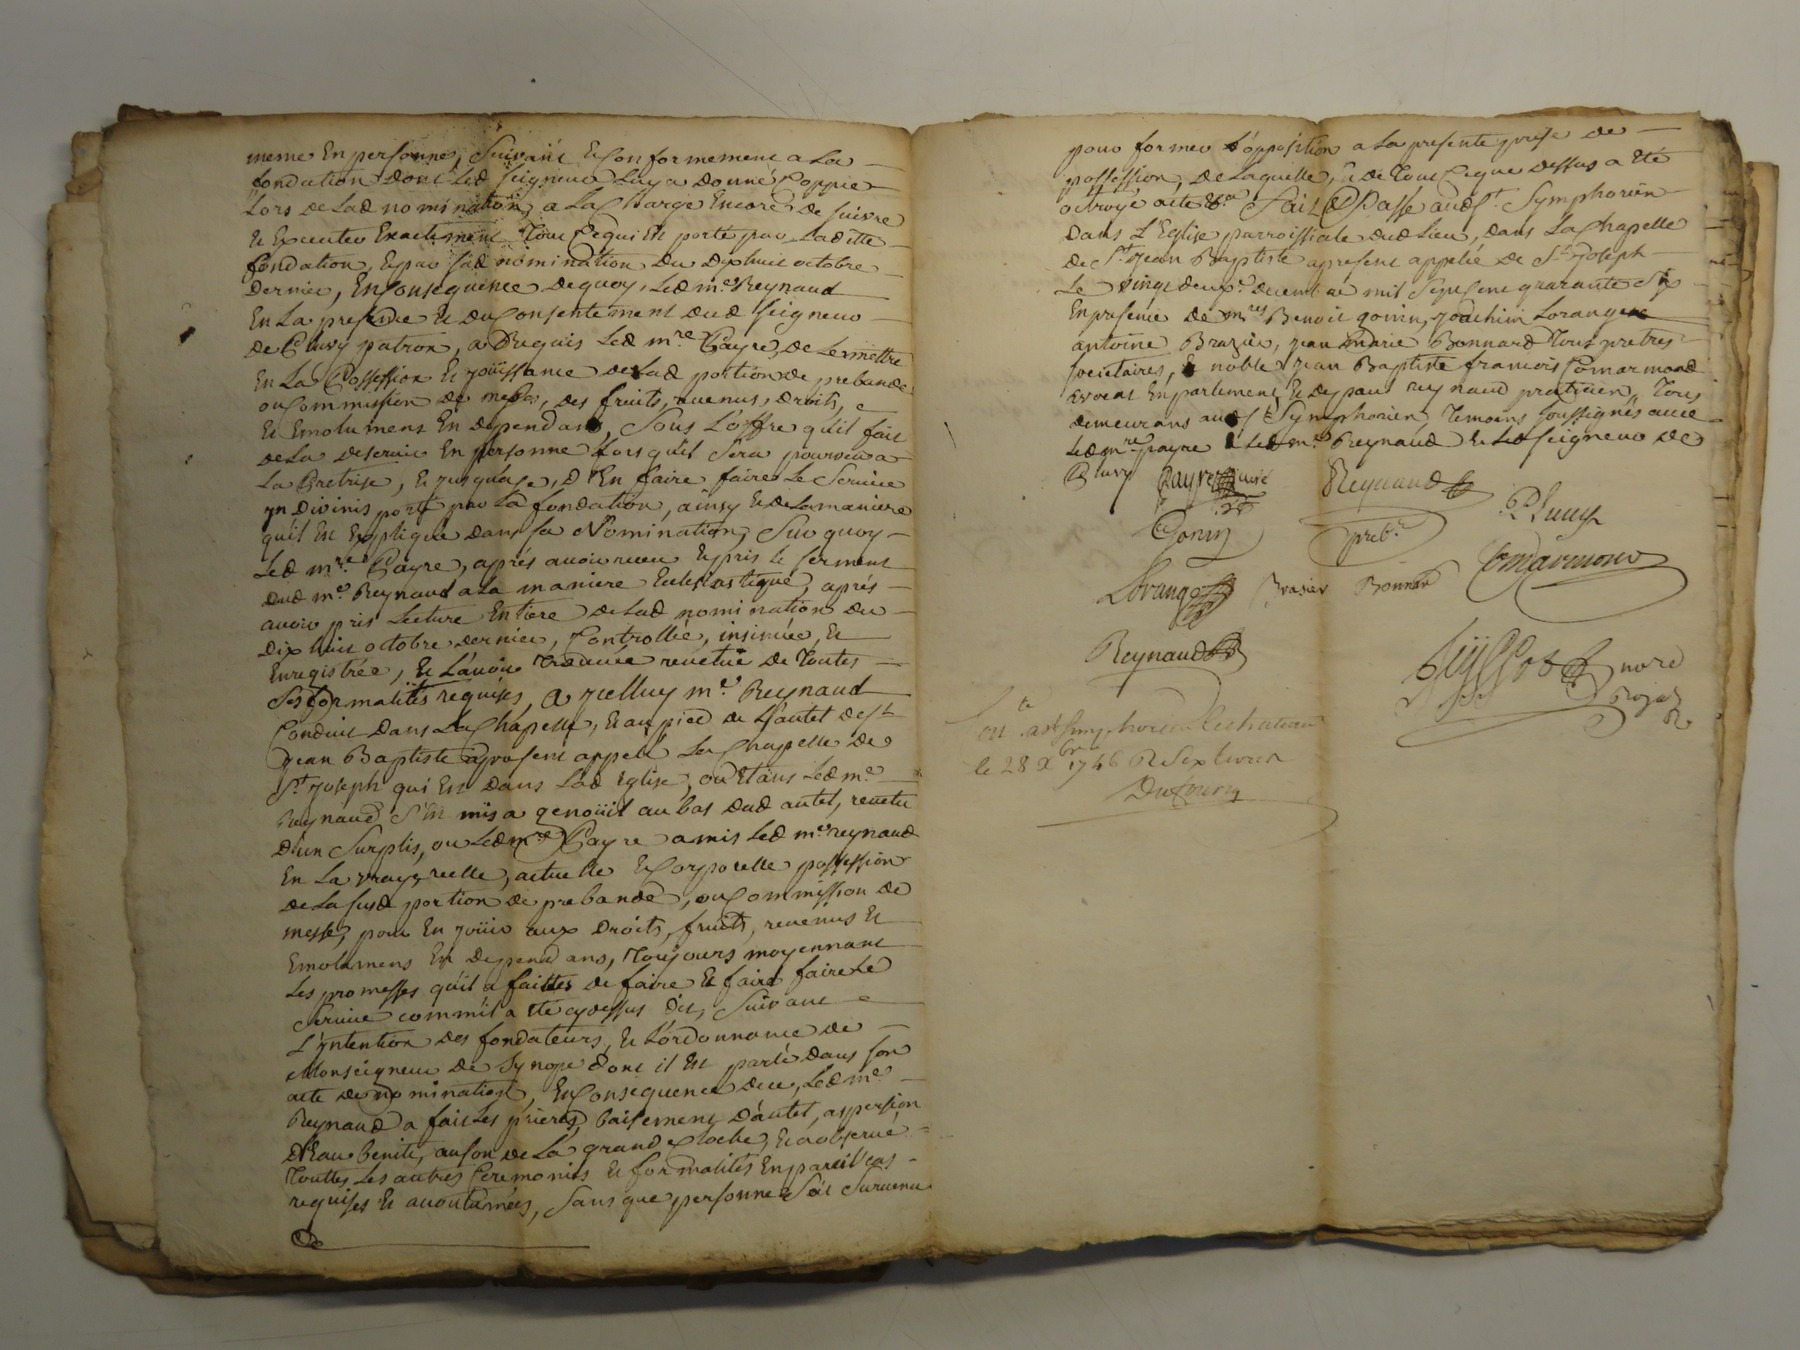 meme En personne, Suivant Et Conformement a La
fondation dont Led seigneur Luy a donné Coppie
Lors de Lad nomination, a La Charge Encore de suivre
Et Executer Exactement Tout Cequi Est porté par Laditte
fondation, Et par sad nomination du Dixhuit octobre
Dernier, En Consequence dequoy, Led mr. Reynaud
En La presence Et du Consentement dud seigneur
De Pluvy patron, a Requis Led mre Payre, de Le mettre
En La Possession Et joüissance de Lad portion de prebande
ou Commission de messes, des fruits, revenus, droits,
Et Emolumens En dependans, Sous L'offre qu'il fait
de La deservir En personne Lorsqu'il Sera pourveu a
La Pretrise, Et jusqu'a ce, D'En faire faire Le Service
yn Divinis porté par La fondation, ainsy Et de La maniere
qu'il Est Expliqué dans sa Nomination, Sur quoy
Led mre Payre, aprés avoir receu Et pris le serment
dud mr. Reynaud a La maniere Ecclesiastique, aprés
avoir pris Lecture Entiere de Lad nomination du
Dix huit octobre dernier, Controllée, insinuée, Et
Enregistrée, Et L'avoir Trouvée revetüe de Toutes
Les formalités requises, a jcelluy mr. Reynaud
Conduit dans La Chapelle, Et au pied de L'autel de St
Jean Baptiste apresent appellé La Chapelle de
St. Joseph qui Est dans Lad Eglise, ou Etans Led mr.
Reynaud S'Est mis a genoüil au bas dud autel, revetu
D'un Surplis, ou Led mre Payre a mis Led mr. reynaud
En La vraye, reelle, actuelle Et Corporelle possession
de La susd portion de prebande, ou Commission de
messe, pour En joüir aux Droits, fruits, revenus Et
Emolumens En dependans, Toujours moyennant
Les promesses qu'il a faittes de faire Et faire faire Le
Service comm'il a été cydessus dit, Suivant
L'yntention des fondateurs, Et L'ordonnance de
Monseigneur de Synope dont il Est parlé dans son
acte de nomination, En Consequence dece, Led mr.
Reynaud a fait Les prieres, baisement d'autel, aspersion
d'Eau benite, au son de La grande Cloche, Et a observé
Touttes Les autres Ceremonies Et formalités En pareil Cas
requises Et accoutumées, Sans que personne Soit Survenu
pour former d'opposition a La presente prise de
possession, de Laquelle, Et de Tout Ceque dessus a Eté
octroyé acte Fait Et Passé aud St. Symphorien
Dans L'Eglise parroissiale dud Lieu, dans La Chapelle
de St. Jean Baptiste apresent appellée de St. Joseph
Le vingt deuxe. decembre mil Sept Cent quarante Six
En presence de mres Benoit gonin, Joachim Lorange
antoine Brazier, jean marie Bonnard Tous pretres
societaires, Et noble Jean Baptiste francois Comarmond
avocat En parlement, Et reynaud praticien, Tous
demeurans aud St. Symphorien Temoins soussignés avec
Led mre payre Et Led mr. Reynaud Et Led seigneur de
Pluvy Payre curé Reynaud
Pluvy
Gonin prêt. Comarmond
Lorange Brasier Bonnard
Reynaud
nore
Royal
a st Simphorien Le chateau
le 28 Xbre 1746 R Six livres